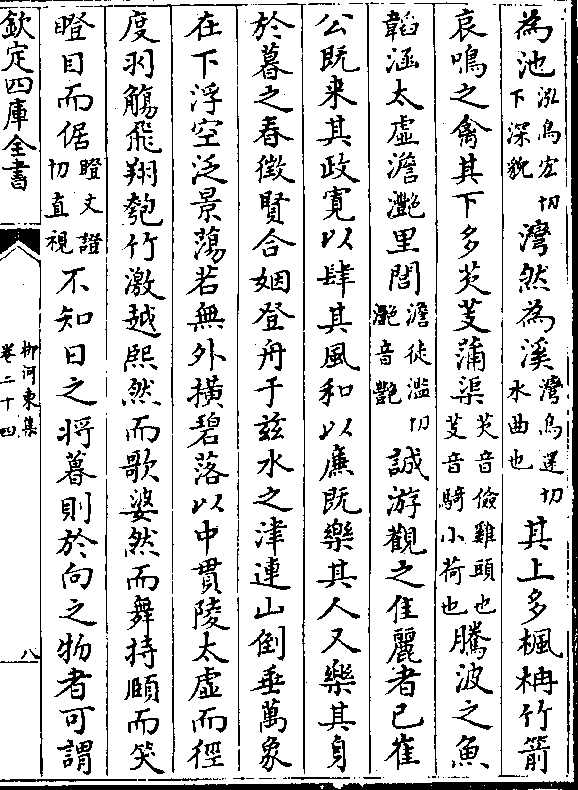 為池泓烏宏切下深貌灣然為溪灣烏還切水曲也其上多楓柟竹箭
哀鳴之禽其下多芡芰蒲渠芡音儉雞頭也芰音騎小荷也騰波之魚
韜涵太虛澹灔里閭澹徒濫切灔音豔誠游觀之佳麗者已崔
公既来其政寛以肆其風和以廉既樂其人又樂其身
於暮之春徴賢合姻登舟于兹水之津連山倒垂萬象
在下浮空泛景蕩若無外横碧落以中貫陵太虛而徑
度羽觴飛翔匏竹激越熙然而歌婆然而舞持頤而笑
瞪目而倨瞪丈證切直視不知日之将暮則於向之物者可謂
欽定四庫全書
柳河東集
卷二十四
八